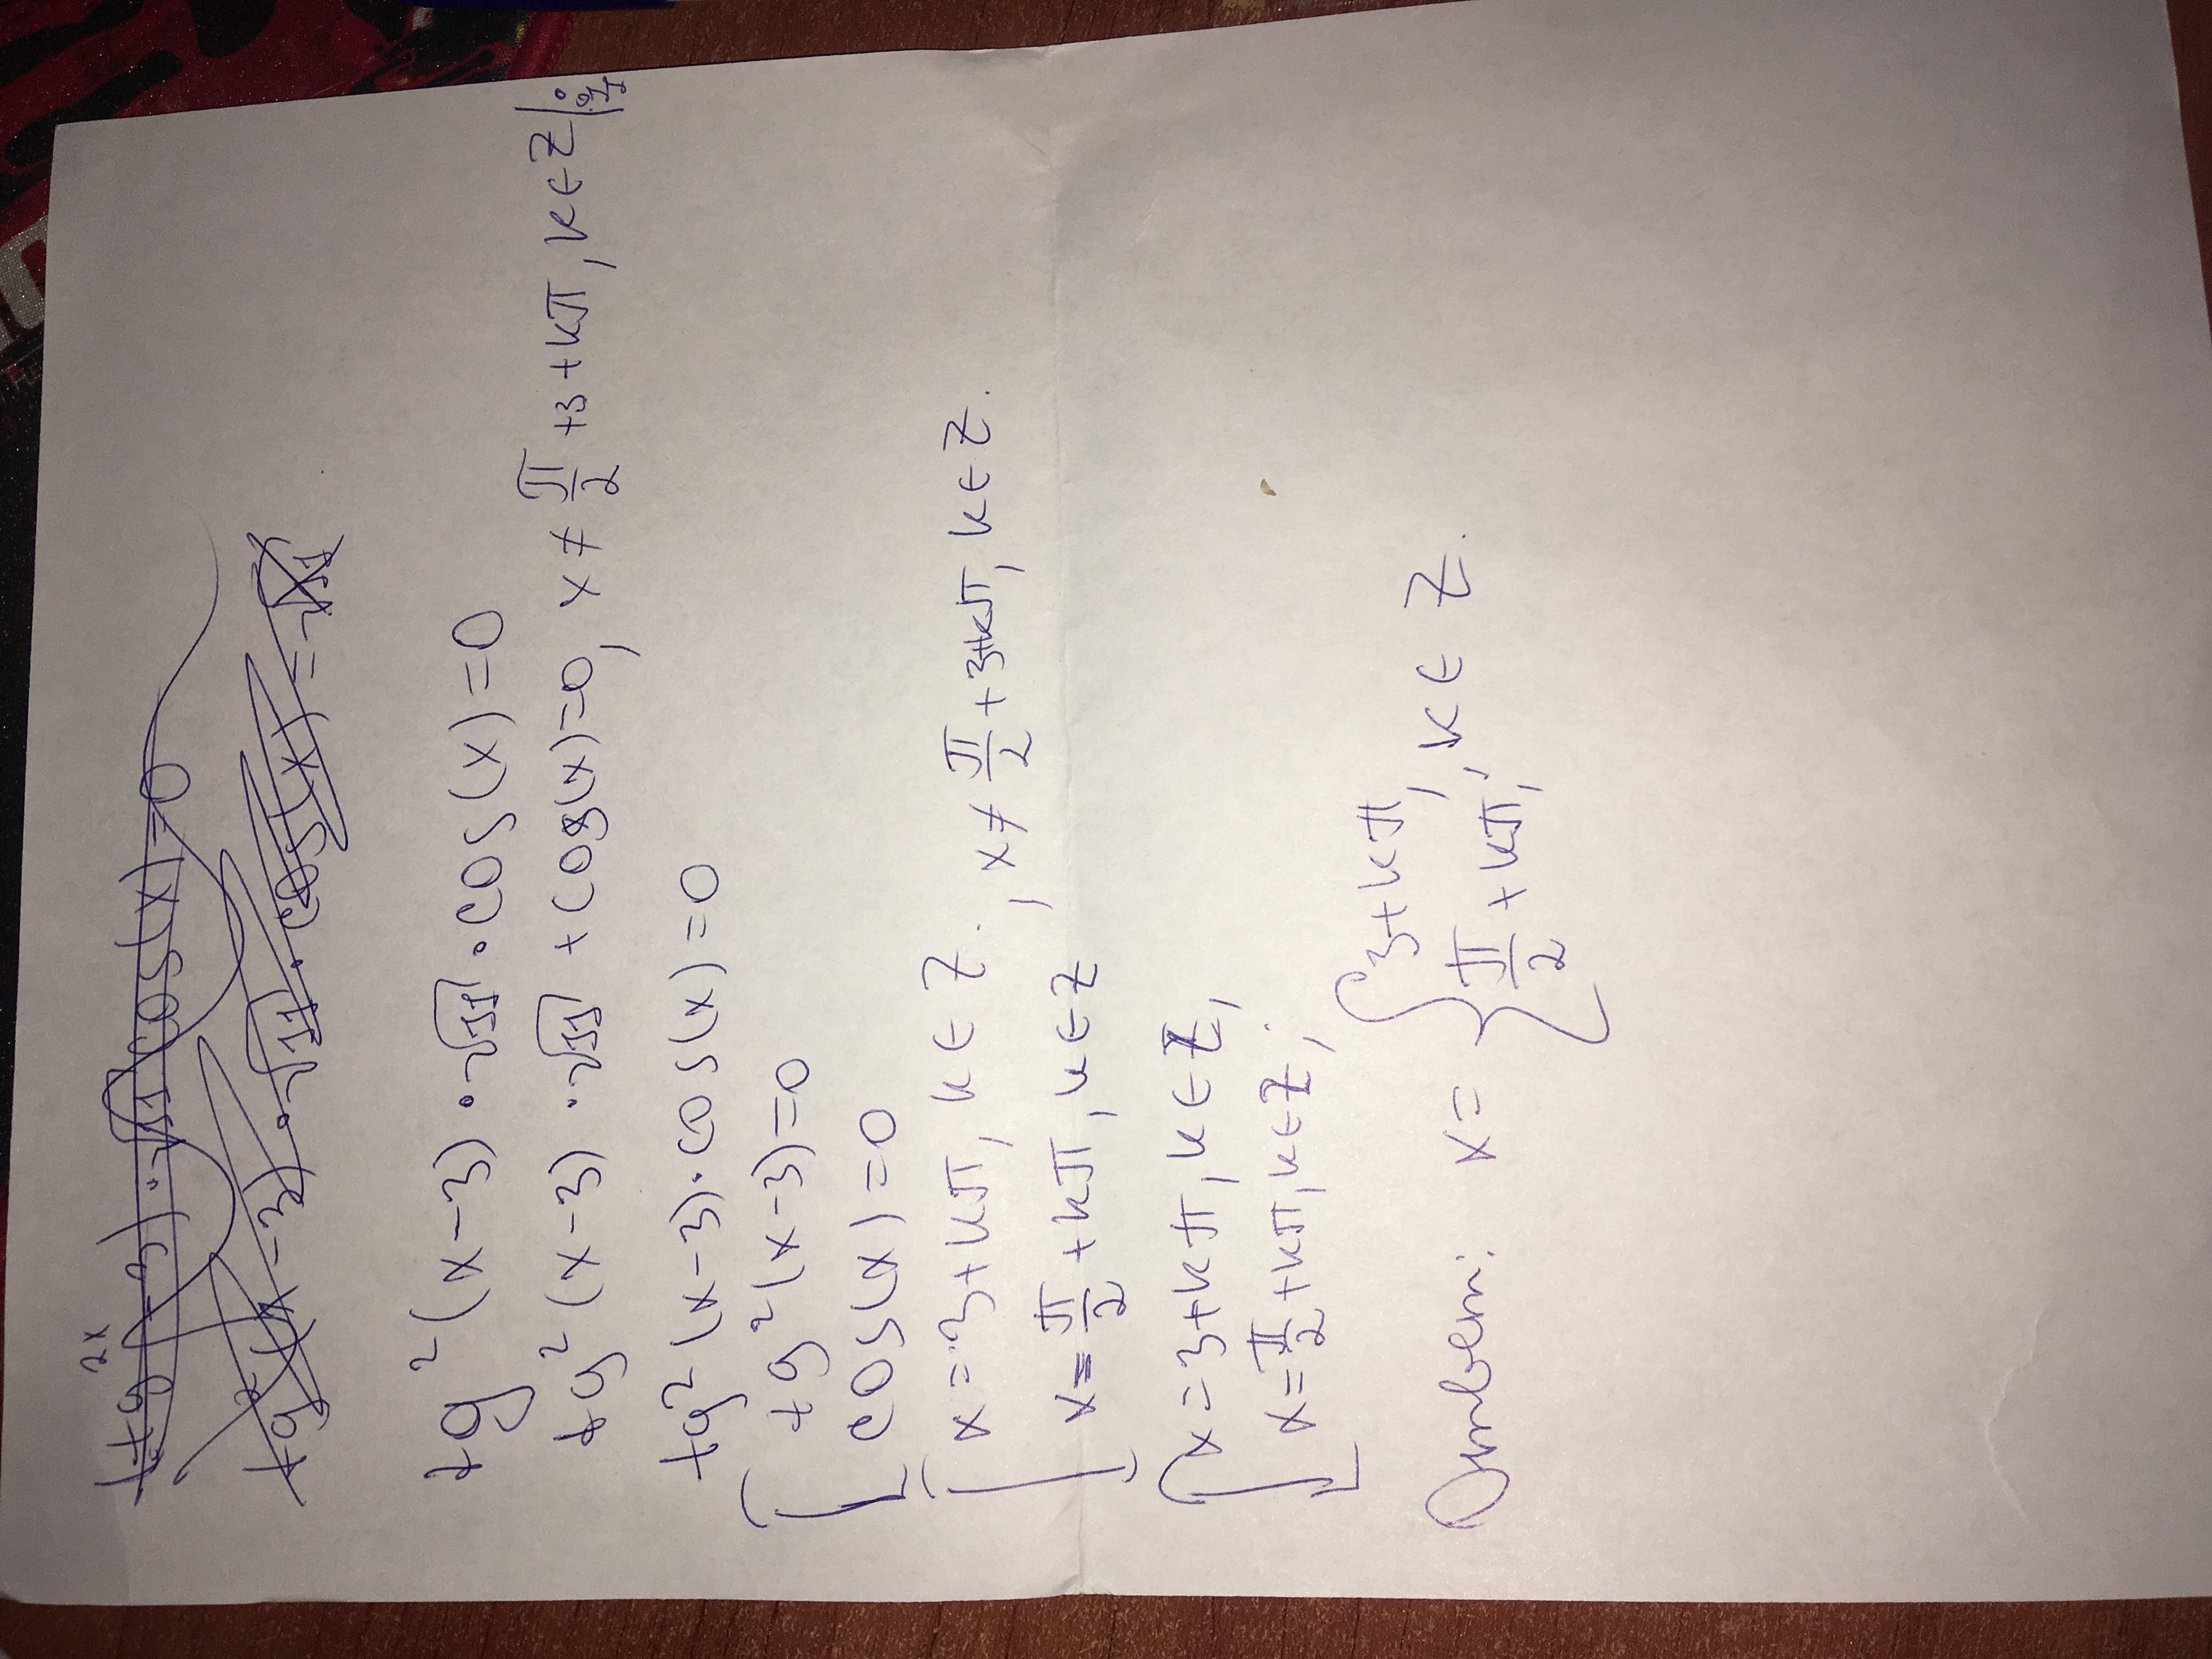 tg²(x-3)·√11·cos(x)=0
tg²(x-3)·√11·cos(x)=
tg²(x-3)·√11·cos(x)=0
tg²(x-3)·√11+cos(x)=0, x≠π/2+3+kπ, k∈Z
tg²(x-3)·cos(x)=0
[tg²(x-3)=0
cos(x)=0
[x=3+kπ, k∈Z., x≠π/2+3+kπ, k∈Z.
x=π/2+kπ, k∈Z
[x=3+kπ, k∈Z,
x=π/2+kπ, k∈Z;
Ответ: x={3+kπ, π/2+kπ, ; k∈Z.